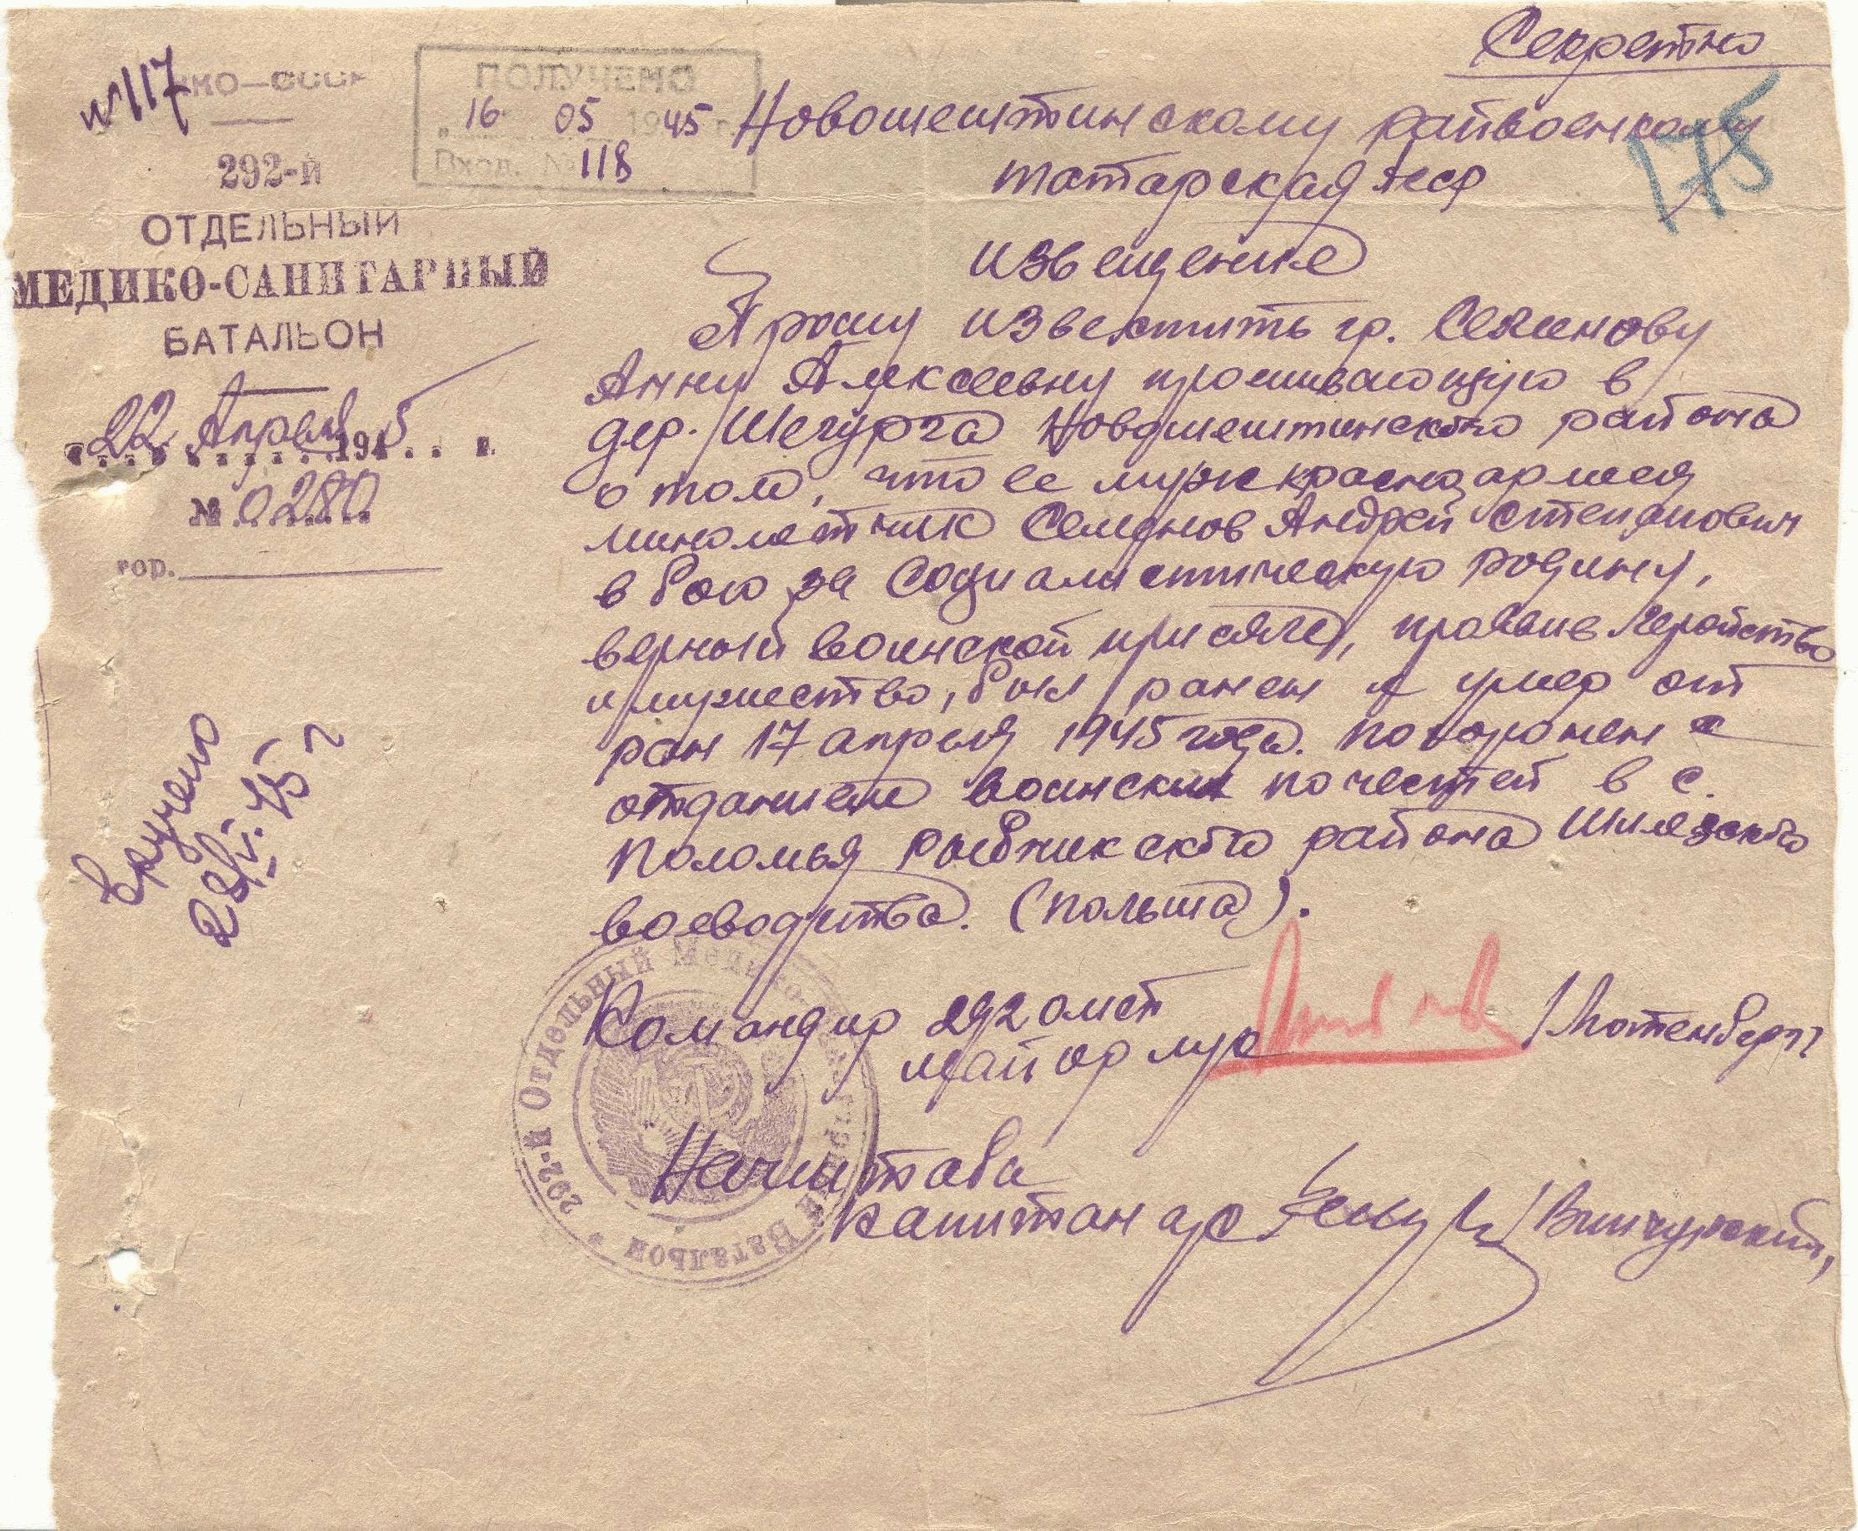 Секретно
№117
НКО—СССР
292-й
ОТДЕЛЬНЫЙ
МЕДИКО-САНИТАРНЫЙ
БАТАЛЬОН
22 Апреля 1945 г.
№ 0280
гор.
ПОЛУЧЕНО
16 05 1945 г.
Вход. № 118
175
Новошештинскому райвоенкому
татарская АССР
извещение
Прошу известить гр. Семенову
Анну Алексеевну проживающую в
дер. Шегурча Новошештинского района
о том, что ее муж красноармеец
минометчик Семенов Андрей Степанович
в бою за Социалистическую родину,
верный воинской присяге, проявив геройство
и мужество, был ранен и умер от
ран 17 апреля 1945 года. Похоронен с
отданием воинских почестей в с.
Поломья Рыбникского района Шлязского
воеводства. (Польша).
вручено
28/V-45 г
Командир 292 омсб
майор м/с /Лотенберг/
Начштаба
капитан а/с /Винчурский/
292-й Отдельный Медико-Санитарный Батальон